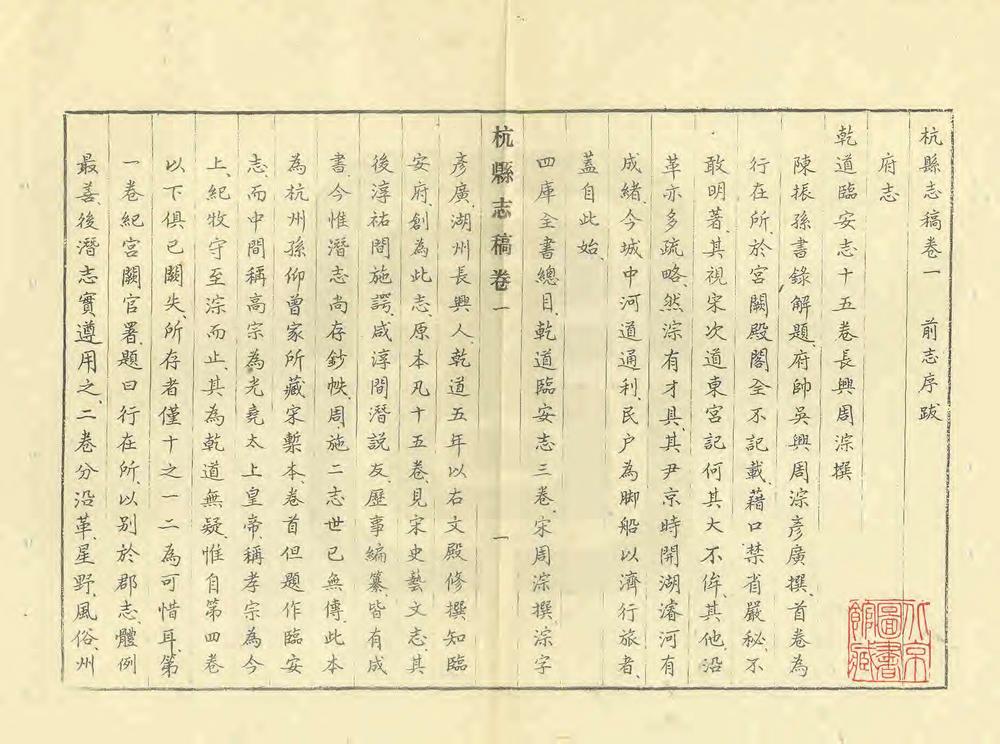 杭縣志稿卷一　前志序跋
府志
乾道臨安志十五卷長興周淙撰
陳振孫書錄解題、府帥吳興周淙彥廣撰、首卷為
行在所、於宮闕殿閣全不記載、藉口禁省嚴秘、不
敢明著、其視宋次道東宮記何其大不侔、其他沿
革亦多疏略、然淙有才具、其尹京時開湖濬河有
成緒、今城中河道通利、民户為脚船以濟行旅者、
蓋自此始、
四庫全書總目、乾道臨安志三卷、宋周淙撰、淙字
杭縣志稿卷一
一
彥廣、湖州長興人、乾道五年以右文殿修撰知臨
安府、創為此志、原本凡十五卷、見宋史藝文志、其
後淳祐間施諤、咸淳間潛説友、歷事編纂皆有成
書、今惟潛志尚存鈔帙、周、施二志世已無傳、此本
為杭州孫仰曾家所藏宋槧本、卷首但題作臨安
志、而中間稱高宗為光堯太上皇帝、稱孝宗為今
上、紀牧守至淙而止、其為乾道無疑、惟自第四卷
以下俱已闕失、所存者僅十之一二為可惜耳、第
一卷紀宮闕官署、題曰行在所、以别於郡志、體例
最善、後潛志實遵用之、二卷分沿革、星野、風俗、州
北京
圖書
館藏